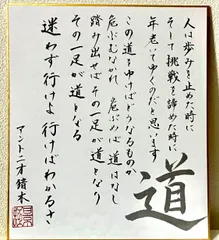 人は歩みを止めた時に
そして挑戦を諦めた時に
年老いて行くのだと思います
この道を行けばどうなるものか
危ぶむなかれ 危ぶめば道はなし
踏み出せばその一足が道となり
その一足が道となる
迷わず行けよ 行けばわかるさ
アントニオ猪木
道